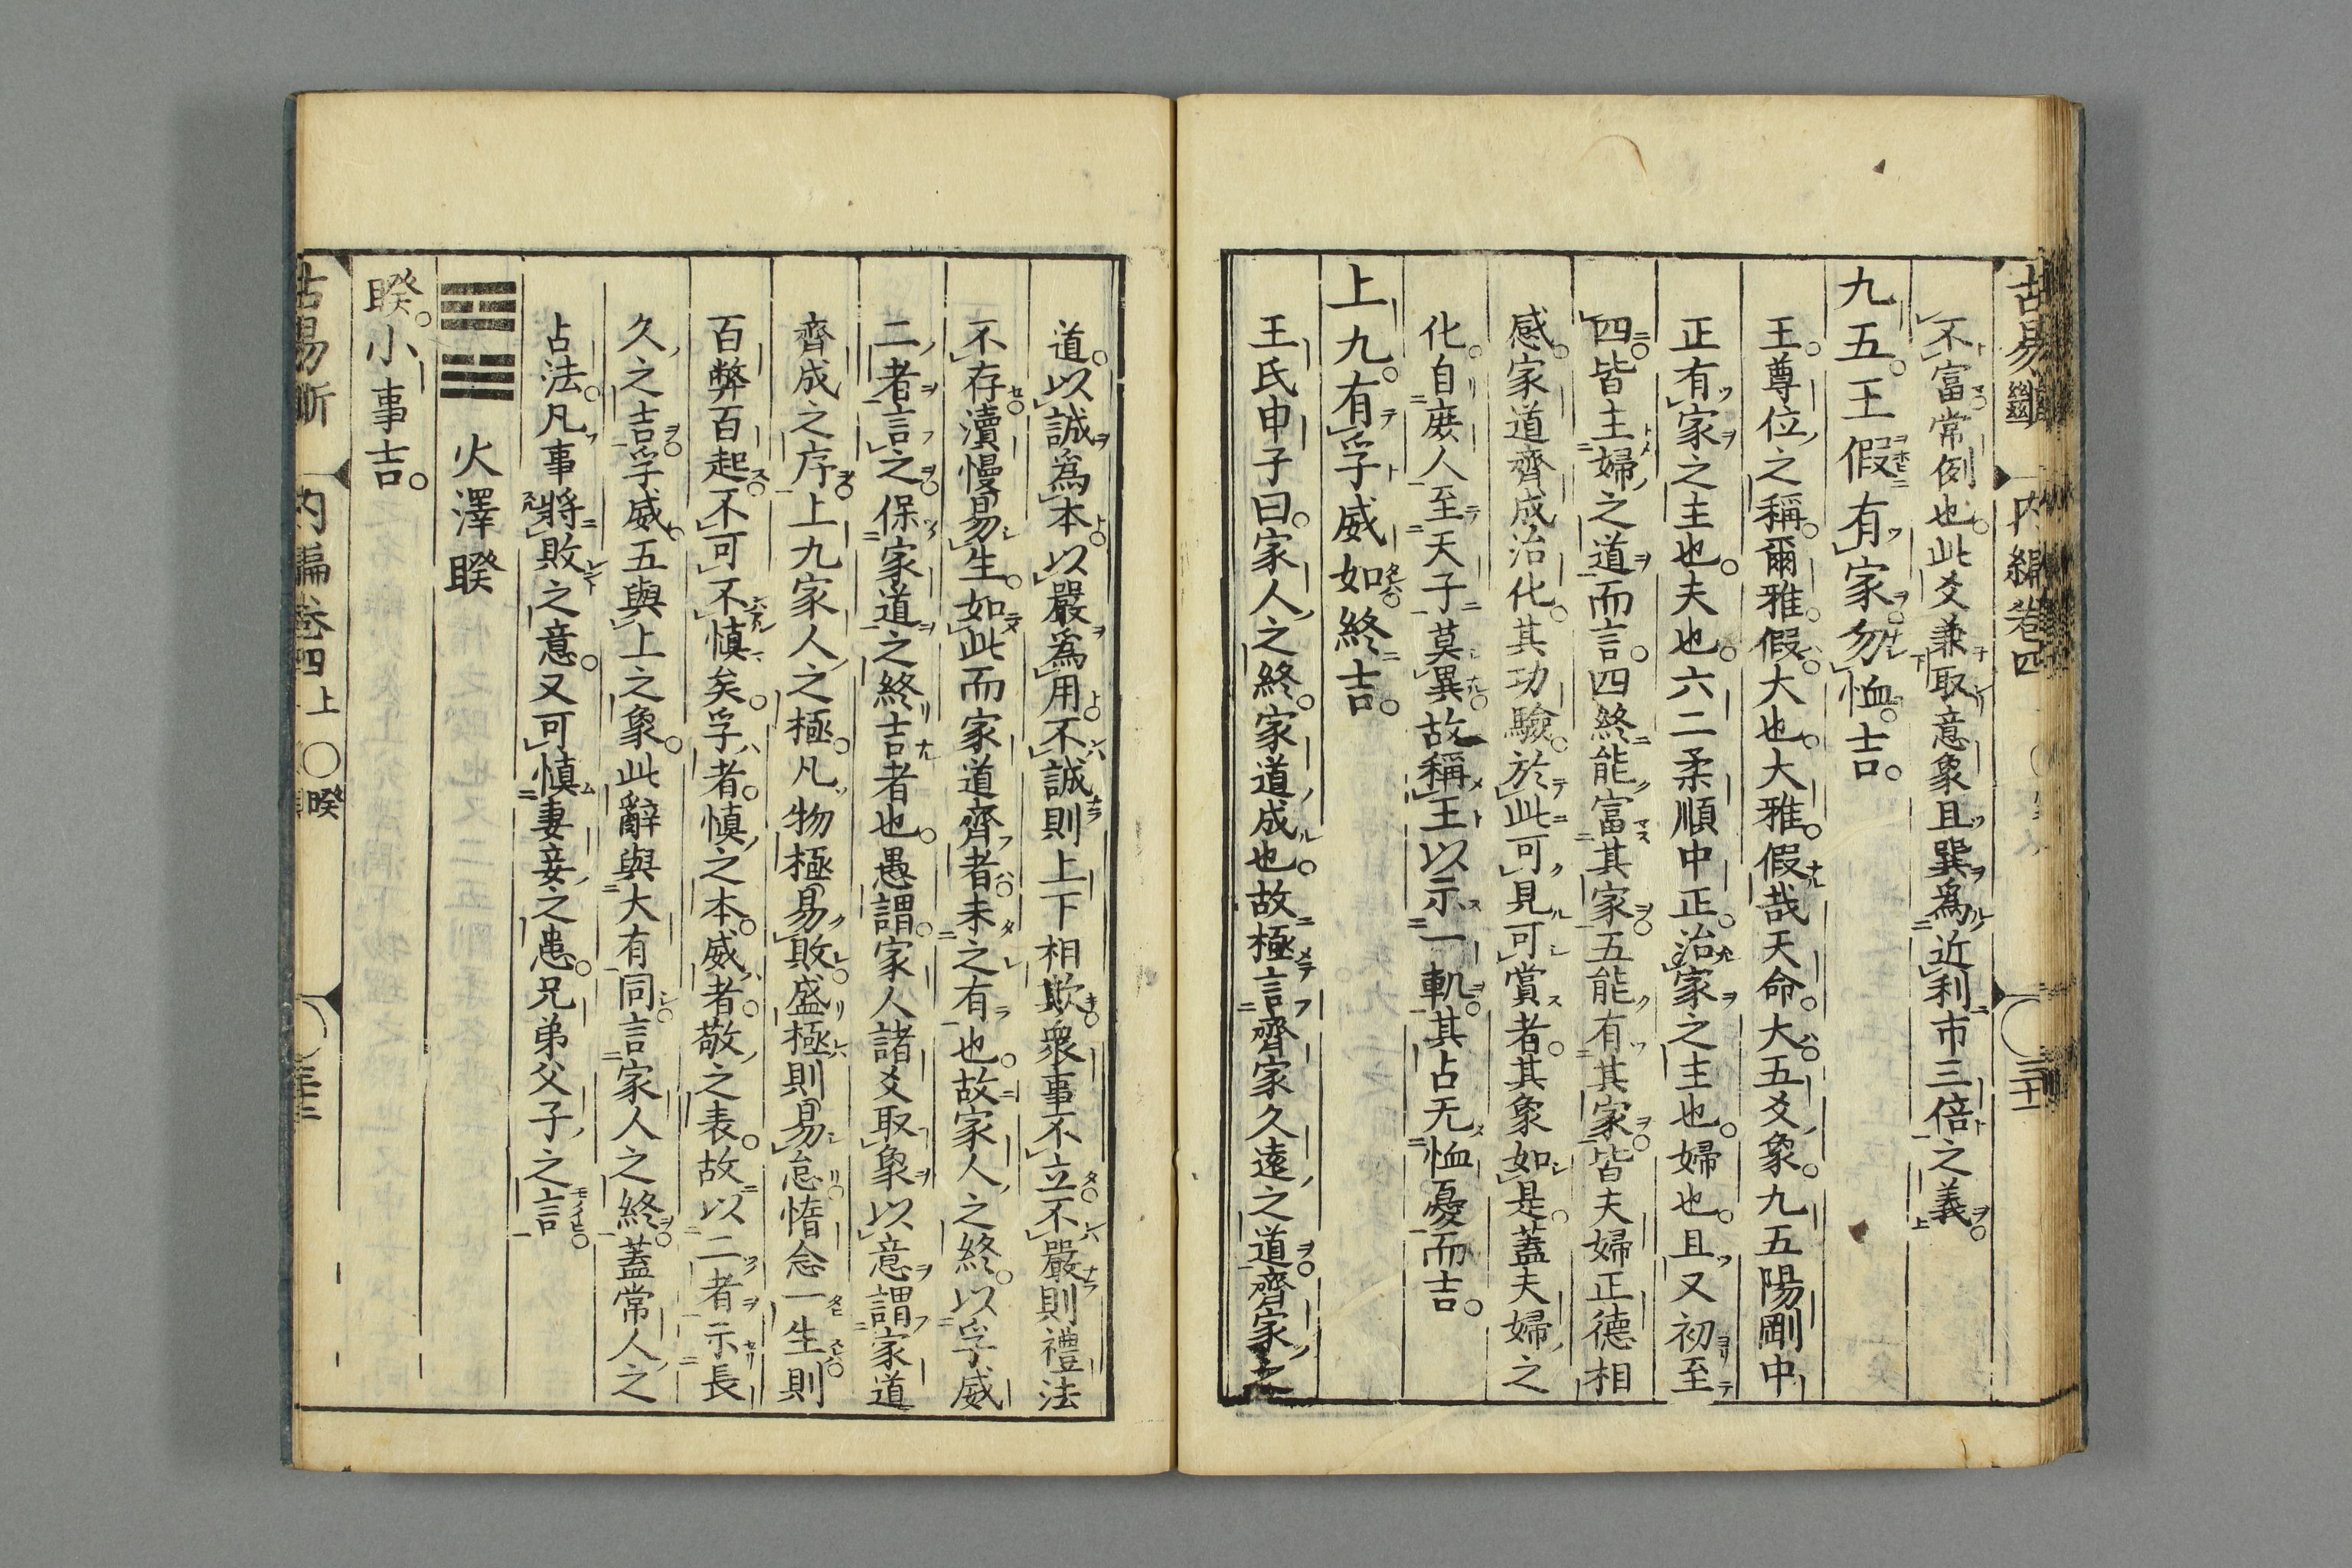 古易斷 内編卷四
不富常例也此爻兼取意象且巽爲近利市三倍之義
九五王假有家勿恤吉
王尊位之稱爾雅假大也大雅假哉天命大五爻象九五陽剛中
正有家之主也夫也六二柔順中正治家之主也婦也且又初至
四皆主婦之道而言四終能富其家五能有其家皆夫婦正德相
感家道齊成治化其功驗於此可見可賞者其象如是蓋夫婦之
化自庶人至天子莫異故稱王以示一軌其占无恤憂而吉
上九有孚威如終吉
王氏申子曰家人之終家道成也故極言齊家久遠之道齊家之
道以誠爲本以嚴爲用不誠則上下相欺衆事不立不嚴則禮法
不存瀆慢易生如此而家道齊者未之有也故家人之終以孚威
二者言之保家道之終吉者也愚謂家人諸爻取象以意謂家道
齊成之序上九家人之極凡物極易敗盛極則易怠惰念一生則
百弊百起不可不慎矣孚者慎之本威者敬之表故以二者示長
久之吉孚威五與上之象此辭與大有同言家人之終蓋常人之
占法凡事將敗之意又可慎妻妾之患兄弟父子之言
火澤睽
睽小事吉
古易斷 内編卷四上 睽